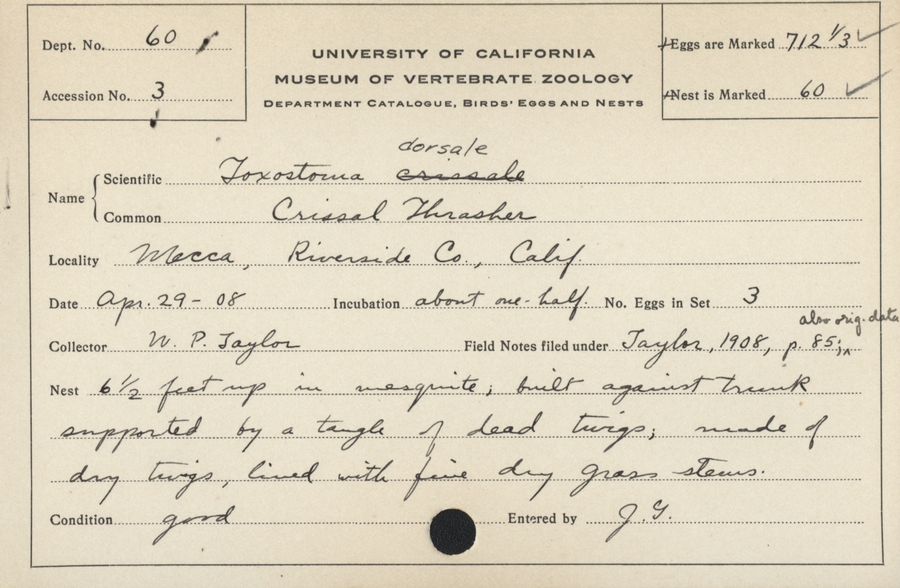 Dept. No. 60
UNIVERSITY OF CALIFORNIA
MUSEUM OF VERTEBRATE ZOOLOGY
DEPARTMENT CATALOGUE, BIRDS' EGGS AND NESTS
Accession No. 3
Eggs are Marked 712 1/3
Nest is Marked 60
dorsale
Name { Scientific Toxostoma crissale
Common Crissal Thrasher
Locality Mecca, Riverside Co., Calif.
Date Apr. 29 - 08 Incubation about one-half. No. Eggs in Set 3
also orig. data
Collector W. P. Taylor Field Notes filed under Taylor, 1908, p. 85;
Nest 6 1/2 feet up in mesquite; built against trunk
supported by a tangle of dead twigs; made of
dry twigs, lined with fine dry grass stems.
Condition good Entered by J. G.